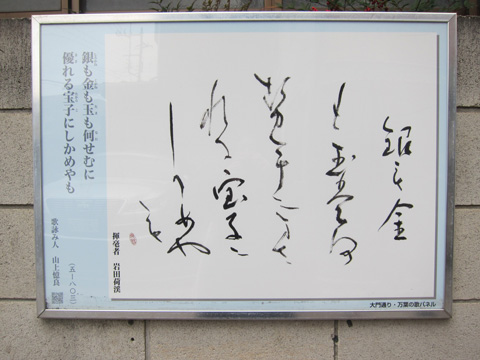 銀も金
も玉も何
れる宝子に
しかめや
も
揮毫者 岩田荷渓
銀も金も玉も何せむに
優れる宝子にしかめやも
歌詠み人 山上憶良
(五―八〇三)
大門通り・万葉の歌パネル